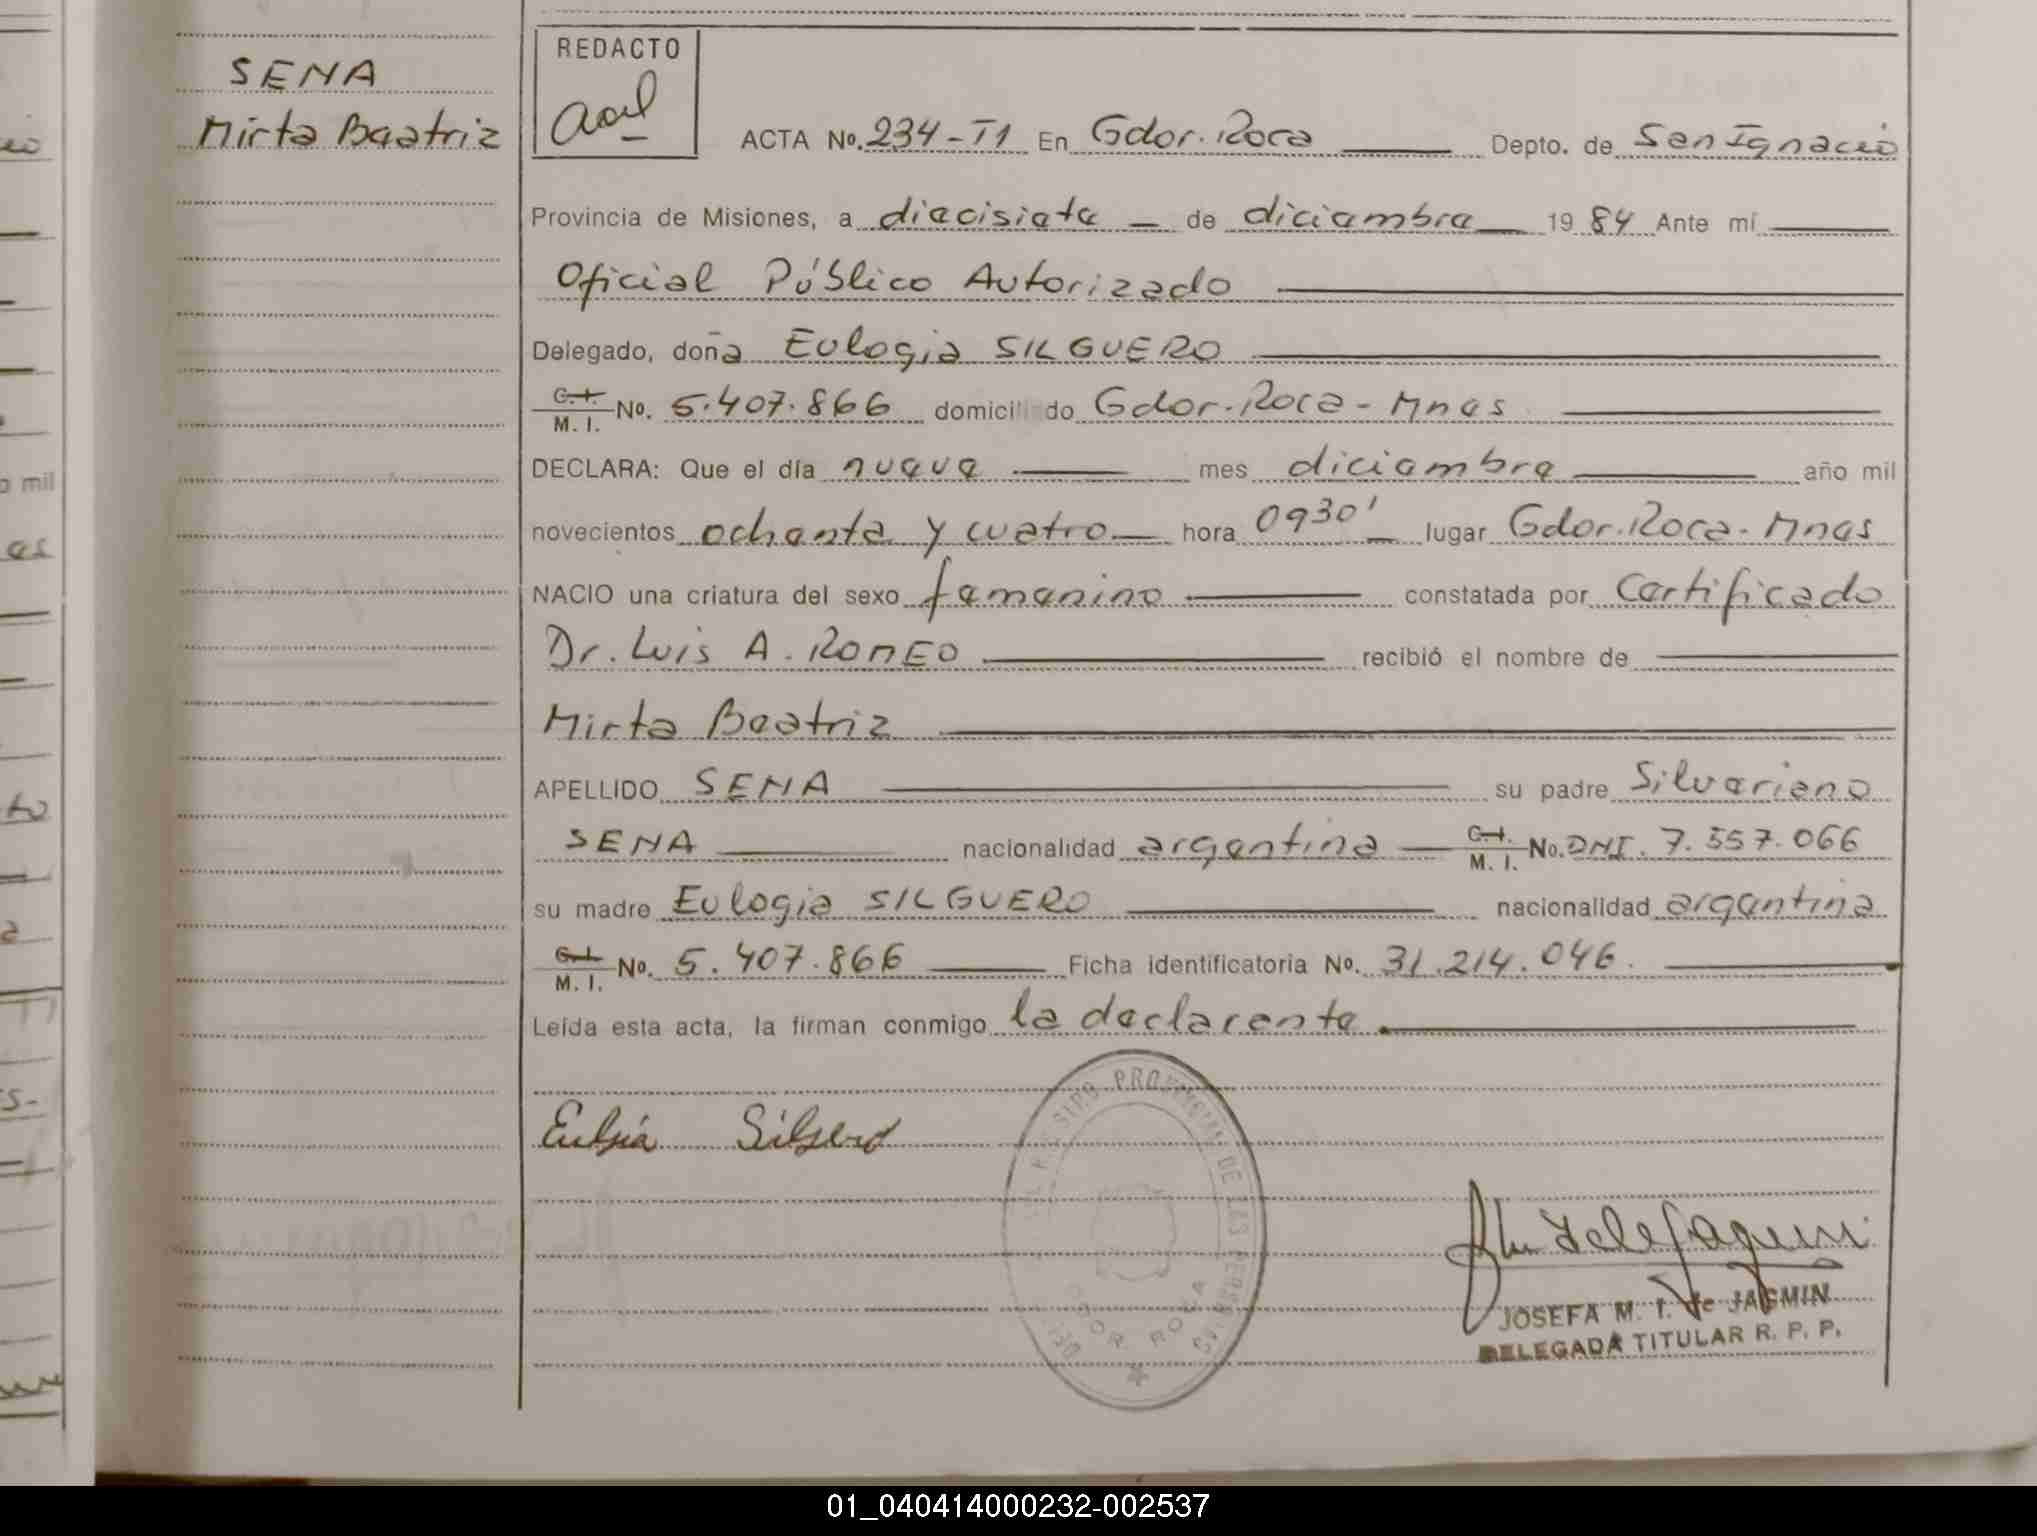 SENA
Mirta Beatriz
REDACTO
ACTA No. 234-T1 En Gdor. Roca Depto. de San Ignacio
Provincia de Misiones, a diecisiete de diciembre 1984 Ante mí
Oficial Público Autorizado
Delegado, doña Eulogia SILGUERO
C.I. M.I. No. 5.407.866 domiciliado Gdor. Roca - Mnes
DECLARA: Que el día nueve mes diciembre año mil
novecientos ochenta y cuatro hora 0930' lugar Gdor. Roca - Mnes
NACIO una criatura del sexo femenino constatada por Certificado
Dr. Luis A. ROMEO recibió el nombre de
Mirta Beatriz
APELLIDO SENA su padre Silveriano
SENA nacionalidad argentina C.I. M.I. No. DNI. 7.557.066
su madre Eulogia SILGUERO nacionalidad argentina
C.I. M.I. No. 5.407.866 Ficha identificatoria No. 31.214.046.
Leída esta acta, la firman conmigo la declarente.
PROVINCIAL DE LAS PERSONAS
GDOR. ROCA
JOSEFA M. I. de JASMIN
DELEGADA TITULAR R. P. P.
01_040414000232-002537